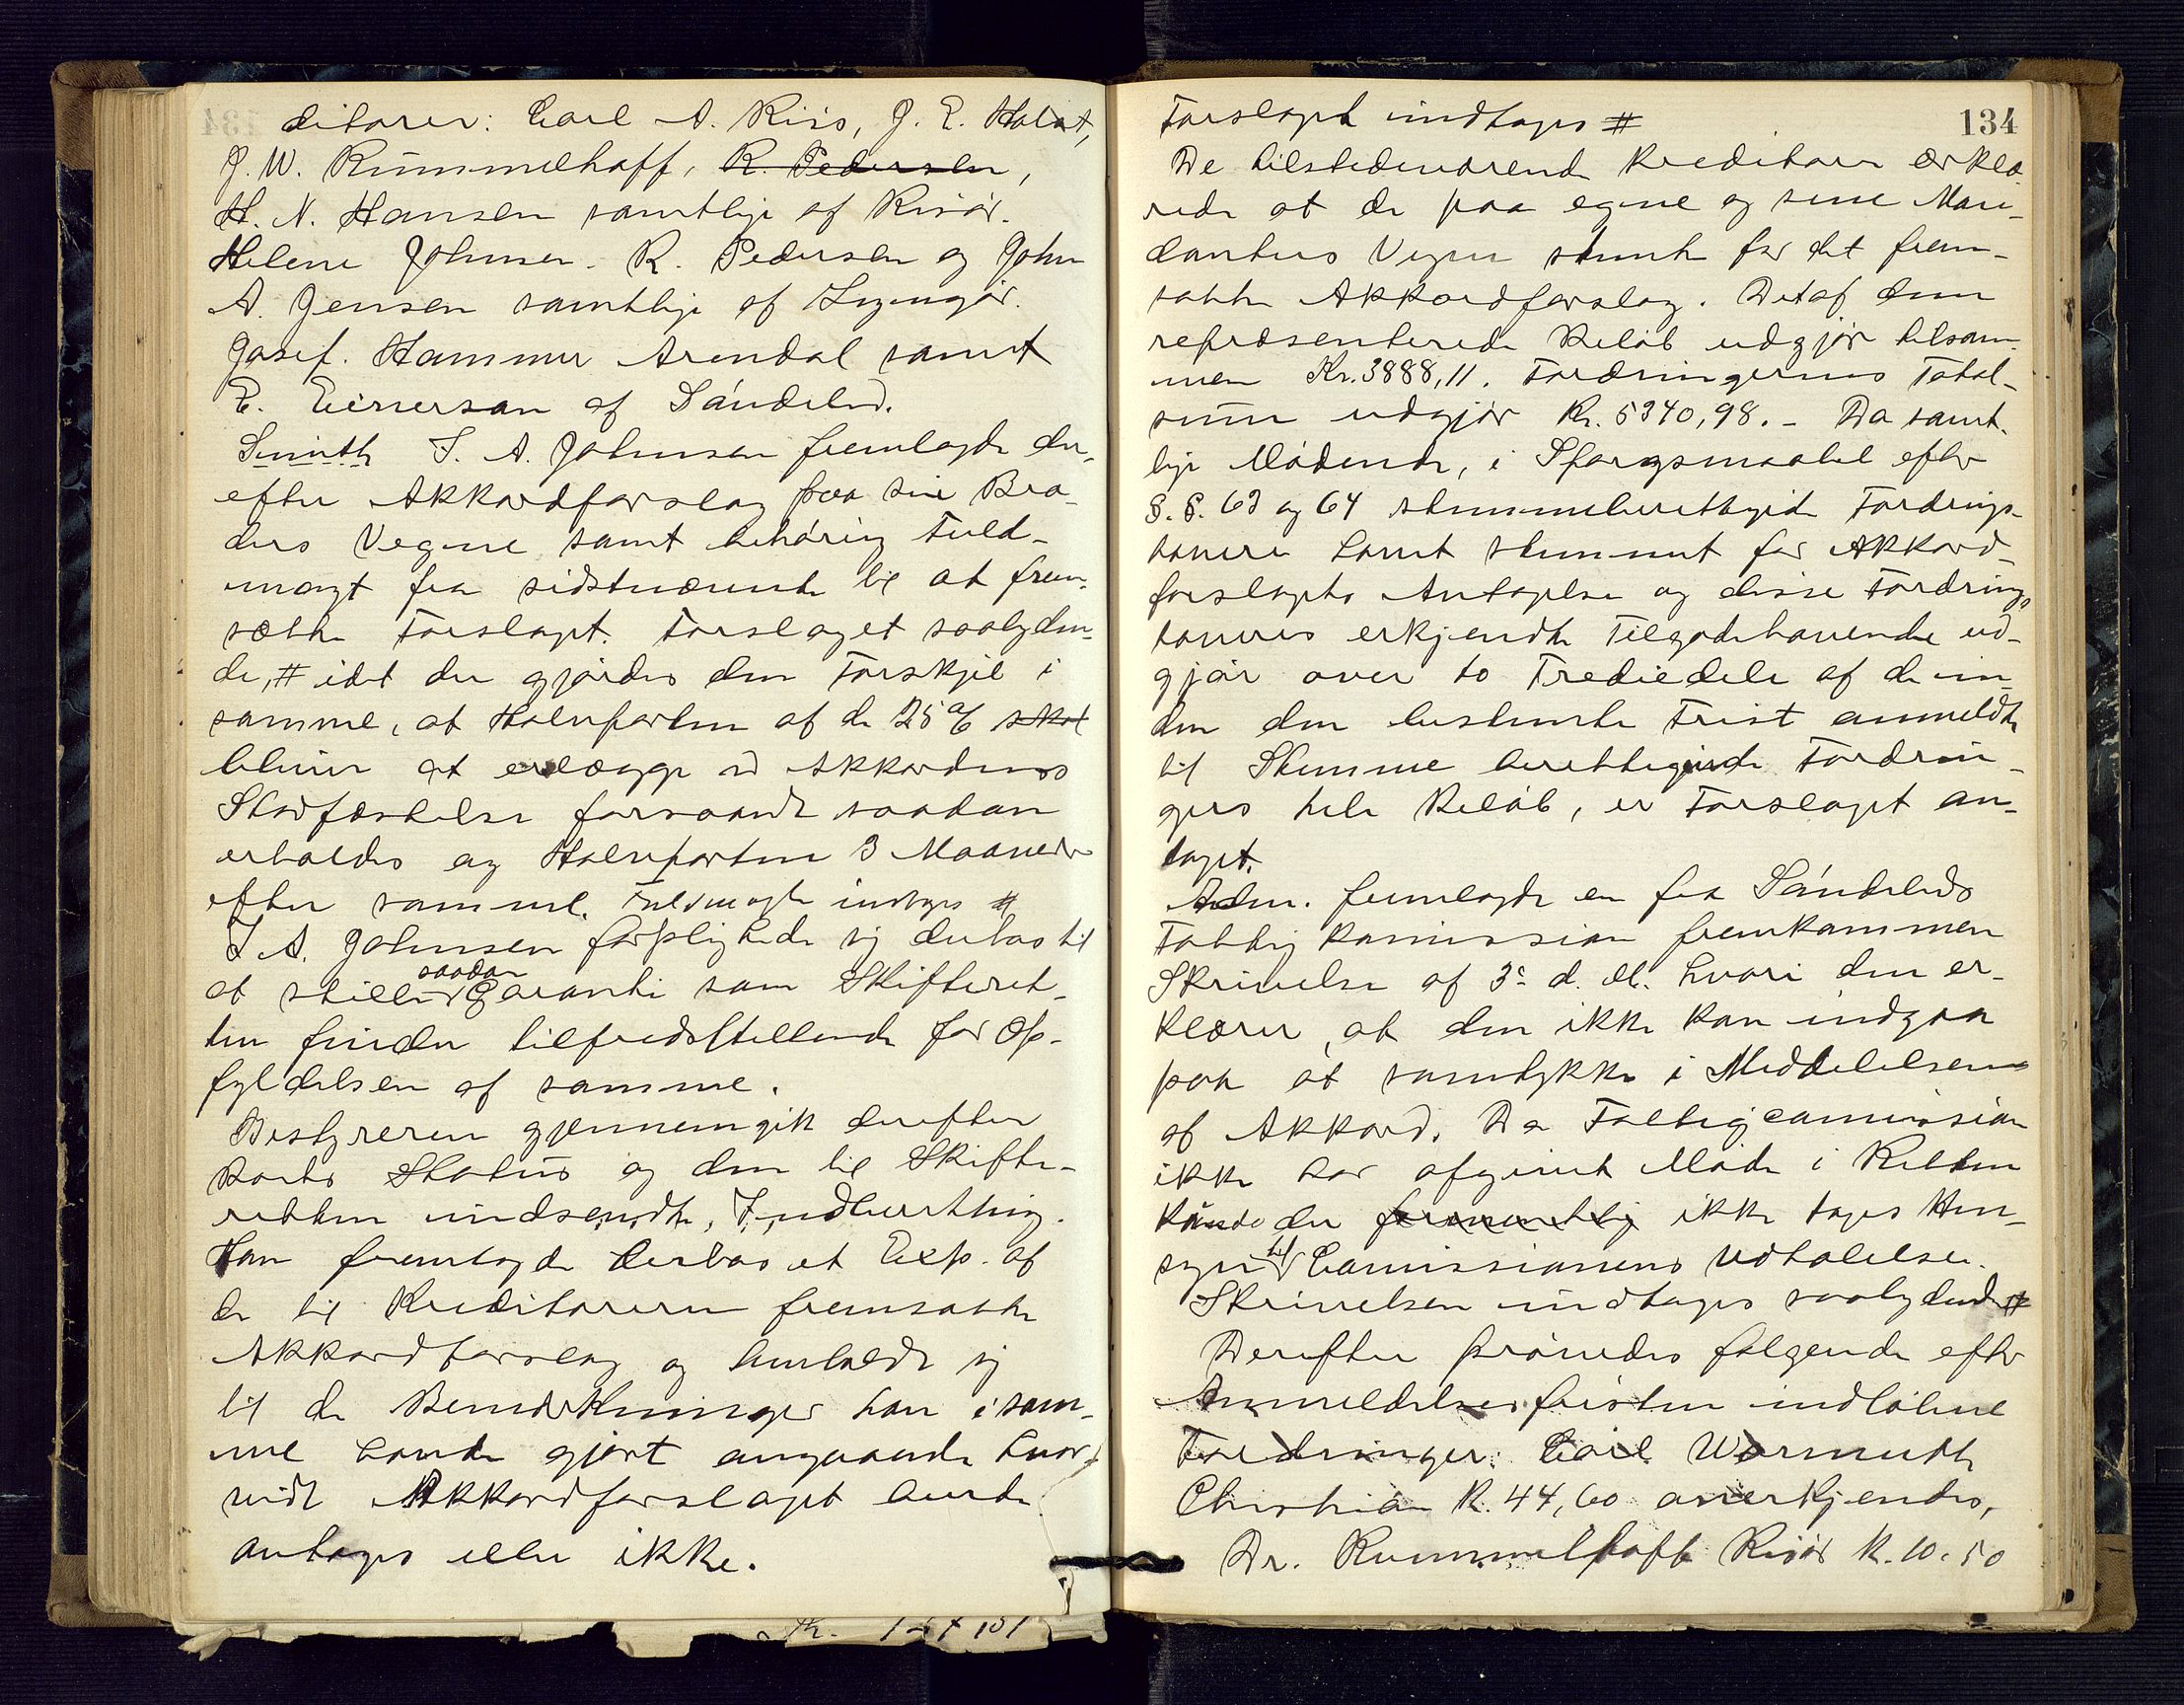 ditorer: Carl A. Riis, J. E. Holst,
J. W. Rummelhoff, R. Pedersen,
H. N. Hansen samtlige af Risør.
Helene Johnsen. R. Pedersen og John
A. Jensen samtlige af Lyngør.
Josef. Hammer Arendal samt
E. Einersen af Søndeled.
Smith J. A. Johnsen fremlagde der-
efter Akkordforslag paa sin Bro-
ders Vegne samt behørig Fuld-
magt fra sidstnævnte til at frem-
sætte Forslaget. Forslaget saalyden-
de, # idet der gjørdes den Forskjel i
samme, at Halvparten af de 25 % skal
bliver at erlægge ved Akkordens
Stadfæstelse forsaavidt saadan
erholdes og Halvparten 3 Maaneder
efter samme. Fuldmagten indtages #
J. A. Johnsen forpligtede sig derhos til
at stille saadan Garanti som Skifteret-
ten finder tilfredsstillende for Op-
fyldelsen af samme.
Bestyreren gjennemgik derefter
Boets Status og den til Skifte-
retten indsendte Indberetning.
Han fremlagde derhos et Exp. af
de til Kreditorerne fremsatte
Akkordforslag og henholdt sig
til de Bemærkninger han i sam-
me havde gjort angaaende hvor-
vidt Akkordforslaget burde
antages eller ikke.
134
Forslaget indtages #
De tilstedeværende Kreditorer erklæ-
rede at de paa egne og sine Man-
danters Vegne stemte for det frem-
satte Akkordforslag. Det af dem
repræsenterede Beløb udgjør tilsam-
men Kr. 3888,11. Fordringernes Total-
sum udgjør Kr. 5340,98. - Da samt-
lige Mødende, i Spørgsmaalet efter
§.§. 63 og 64 stemmeberettigede Fordrings-
havere havt stemmet for Akkord-
forslagets Antagelse og disse Fordrings-
haveres erkjendte Tilgodehavende ud-
gjør over to Trediedele af de in-
den den bestemte Frist anmeldte
til Stemme berettigende Fordrin-
gers hele Beløb, er Forslaget an-
taget.
Adm. fremlagde en fra Søndeleds
Fattigkomission fremkommen
Skrivelse af 3e d. M. hvori den er-
klærer, at den ikke kan indgaa
paa at samtykke i Meddelelsen
af Akkord. Da Fattigcomission
ikke har afgivet Møde i Retten
kunde der formentlig ikke tages Hen-
syn til Comissionens Udtalelse.
Skrivelsen indtages saalydende #
Derefter prøvedes følgende efter
Anmeldelsesfristen indløbne
Fordringer: Carl Warmuth
Christiania K. 44,60 anerkjendes,
Dr. Rummelhoff Risør K. 10.50